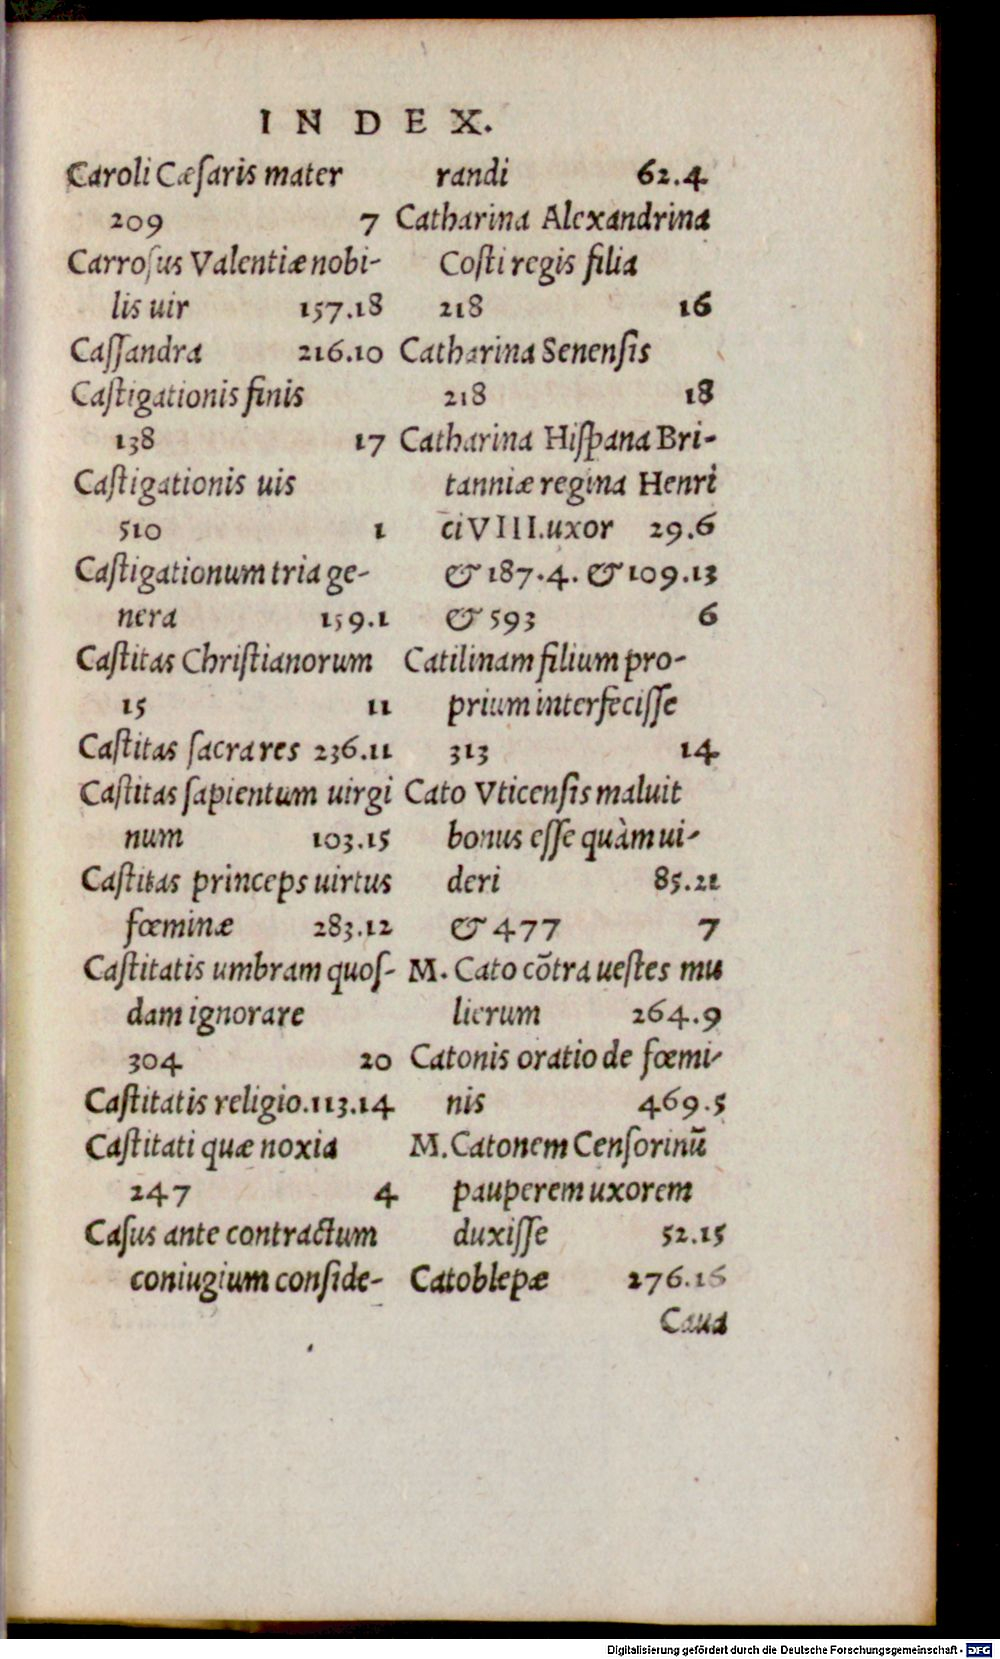 INDEX.
Caroli Cæſaris mater
209 7
Carroſus Valentiæ nobi-
lis uir 157.18
Caſſandra 216.10
Caſtigationis finis
138 17
Caſtigationis uis
510 1
Caſtigationum tria ge-
nera 159.1
Caſtitas Chriſtianorum
15 11
Caſtitas ſacra res 236.11
Caſtitas ſapientum uirgi
num 103.15
Caſtitas princeps uirtus
fœminæ 283.12
Caſtitatis umbram quoſ-
dam ignorare
304 20
Caſtitatis religio.113.14
Caſtitati quæ noxia
247 4
Caſus ante contractum
coniugium conſide-
randi 62.4
Catharina Alexandrina
Coſti regis filia
218 16
Catharina Senenſis
218 18
Catharina Hiſpana Bri-
tanniæ regina Henri
ci VIII. uxor 29.6
& 187.4. & 109.13
& 593 6
Catilinam filium pro-
prium interfeciſſe
313 14
Cato Vticenſis maluit
bonus eſſe quàm ui-
deri 85.21
& 477 7
M. Cato cõtra ueſtes mu
lierum 264.9
Catonis oratio de fœmi-
nis 469.5
M. Catonem Cenſorinũ
pauperem uxorem
duxiſſe 52.15
Catoblepæ 276.16
Caua
Digitalisierung gefördert durch die Deutsche Forschungsgemeinschaft - DFG